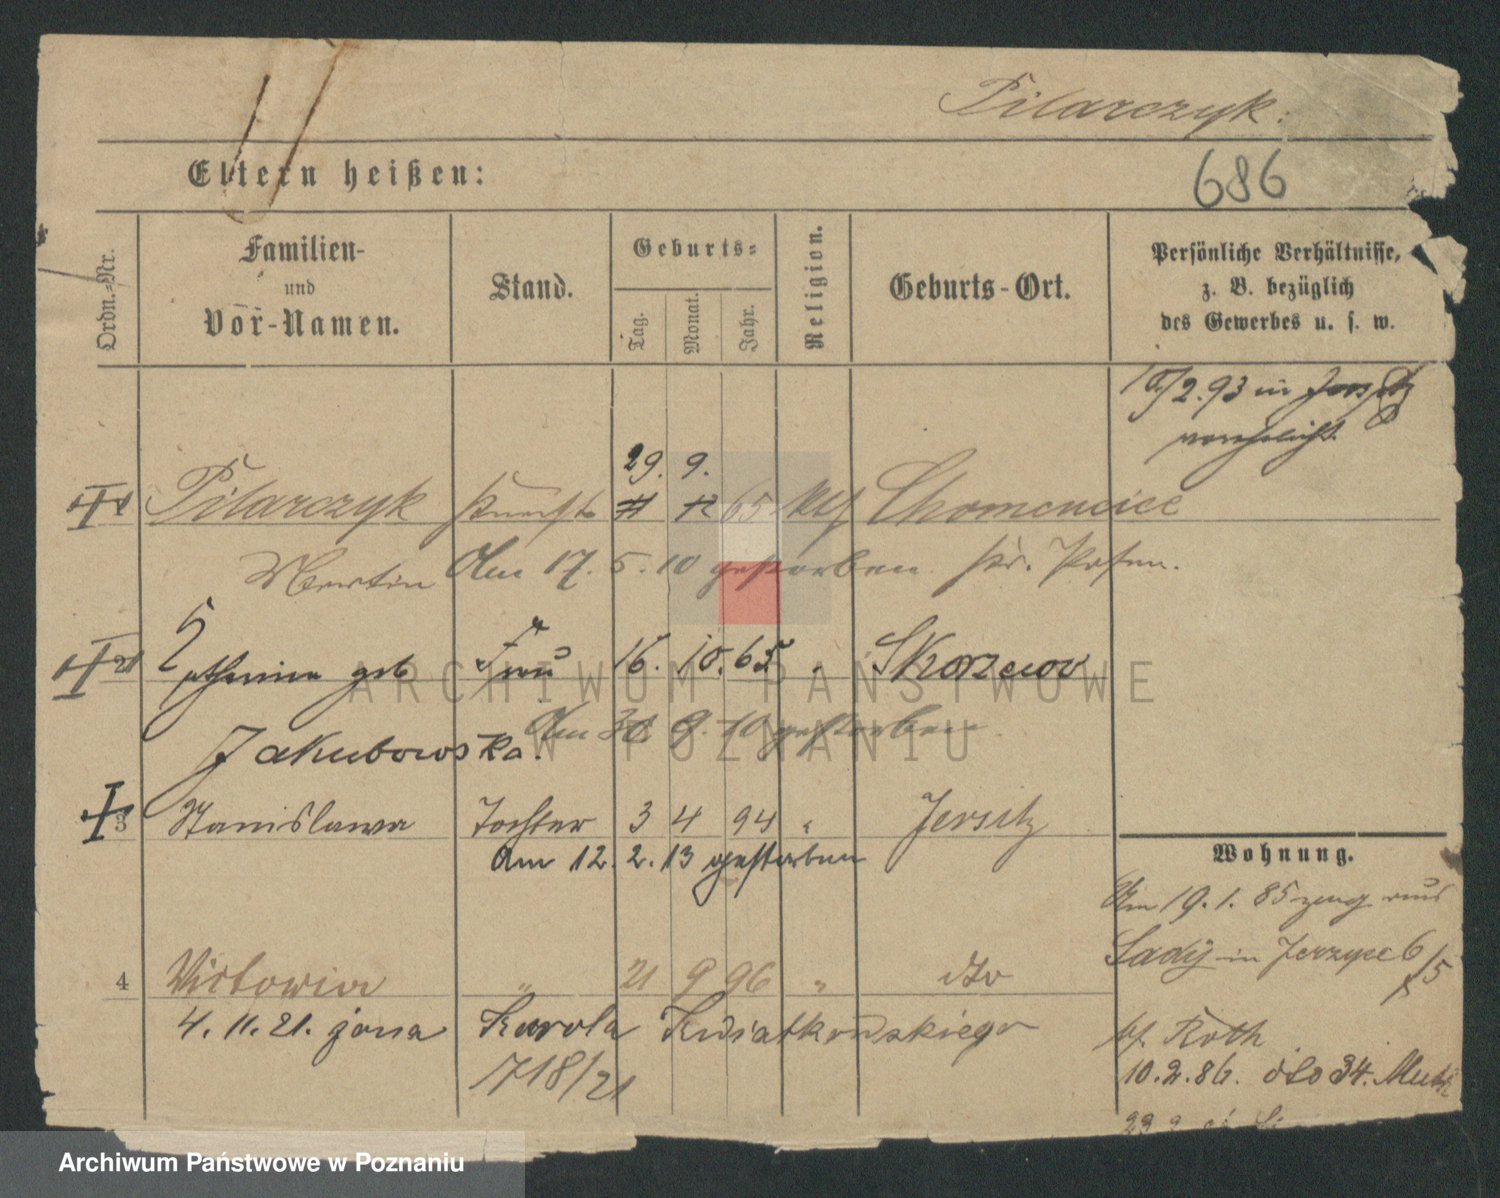 Pilarczyk.
Eltern heißen:
686
Ordn.-Nr.
Familien-
und
Vor-Namen.
Stand.
Geburts-
Tag.
Monat.
Jahr.
Religion.
Geburts-Ort.
Persönliche Verhältnisse,
z. B. bezüglich
des Gewerbes u. s. w.
10/2.93 in Jersitz
verehelicht.
29. 9.
1 Pilarczyk 11 12 65 Chomencice
Martin Am 17. 5. 10 gestorben Kr. Posen.
2 geb Frau 16. 10. 65 „ Skorzewo
Jakubowska. Am 9. 10 gestorben
3 Stanislawa Tochter 3 4 94 „ Jersitz
Am 12. 2. 13 gestorben
4 Victoria „ 21 9 96 „ dto
4. 11. 21. żona Karola Kwiatkowskiego
718/21
Wohnung.
Am 19. 1. 85 zuzug aus
in Jerzyce 6/5
bf. Roth
10. 2. 86. dto 34.
ARCHIWUM PAŃSTWOWE
W POZNANIU
Archiwum Państwowe w Poznaniu